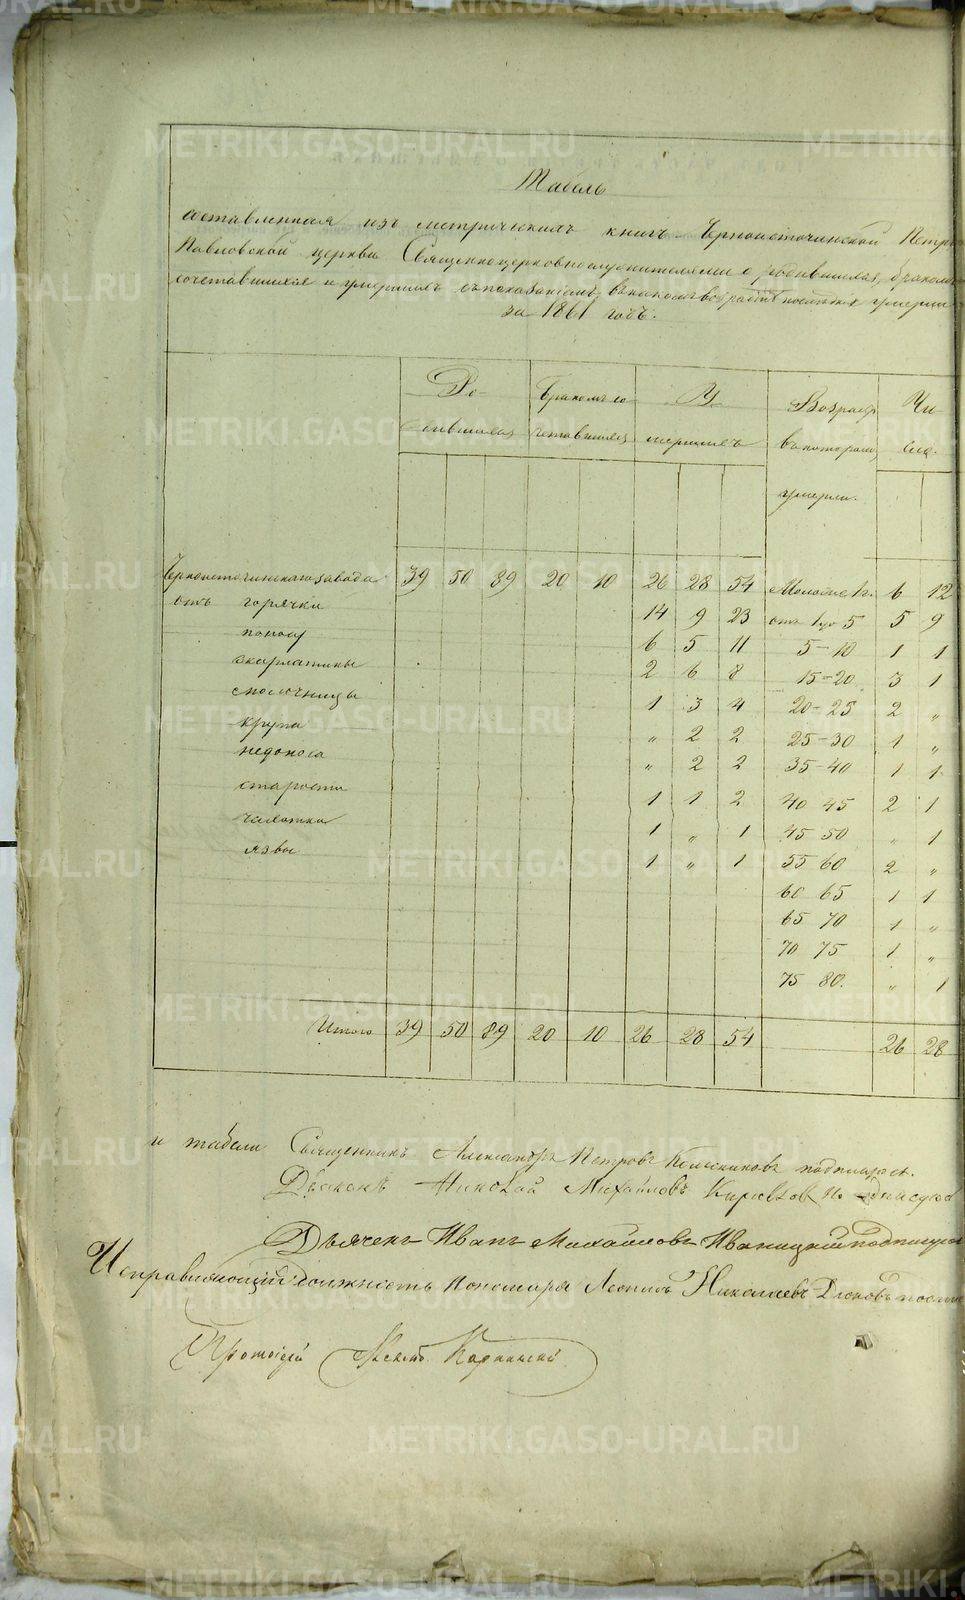 Табель
составленная изъ метрическихъ книгъ Черноисточинской Петро
Павловской церкви Священноцерковнослужителями о родившихся, бракомъ
сочетавшихся и умершихъ съ показаніемъ, въ какомъ возрастѣ умерли
за 1861 годъ.
Ро- Бракомъ со У Возрастъ Чи-
дившихся четавшихся мершихъ въ которомъ сла.
умерли.
Черноисточинскаго завода 39 50 89 20 10 26 28 54 Моложе 1 г. 6 12
отъ горячки 14 9 23 отъ 1 до 5 5 9
поносу 6 5 11 5-10 1 1
скарлатины 2 6 8 15-20 3 1
молочницы 1 3 4 20-25 2 "
крупа " 2 2 25-30 1 "
недоноса " 2 2 35-40 1 1
старости 1 1 2 40 45 2 1
чахотки 1 " 1 45 50 " 1
язвы 1 " 1 55 60 2 "
60 65 1 1
65 70 1 "
70 75 1 "
75 80. " 1
Итого 39 50 89 20 10 26 28 54 26 28
и табели Священникъ Александръ Петровъ подписался.
Діаконъ Николай Михайловъ
Дьячекъ Иванъ Михайловъ Иваницкій подписуюсь
Исправляющій должность Пономаря Леонидъ Николаевъ
Протоіерей
METRIKI.GASO-URAL.RU